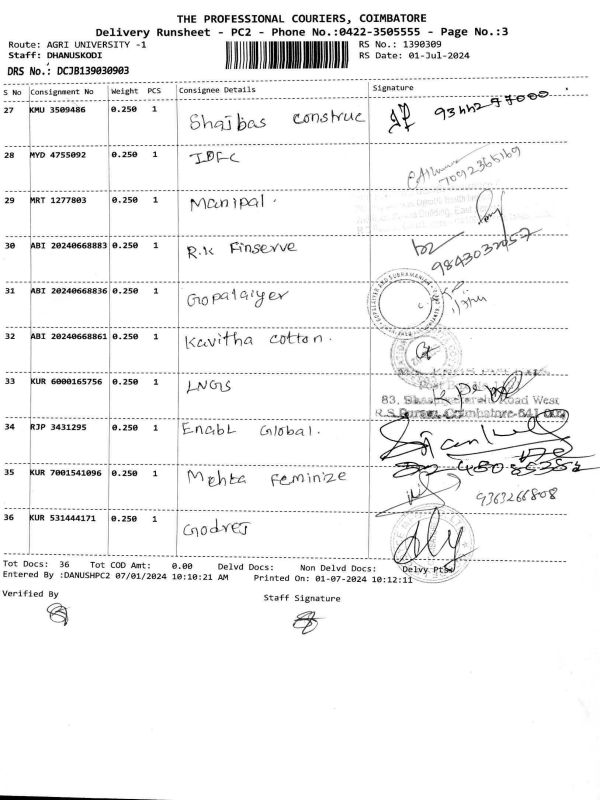 THE PROFESSIONAL COURIERS, COIMBATORE
Delivery Runsheet - PC2 - Phone No.:0422-3505555 - Page No.:3
Route: AGRI UNIVERSITY -1 RS No.: 1390309
Staff: DHANUSKODI RS Date: 01-Jul-2024
DRS No.: DCJB139030903
S No Consignment No Weight PCS Consignee Details Signature
27 KMU 3509486 0.250 1 Shajbas construc
28 MYD 4755092 0.250 1 IDFC 7092365169
29 MRT 1277803 0.250 1 Manipal.
30 ABI 20240668883 0.250 1 R.K Finserve 9843032057
31 ABI 20240668836 0.250 1 Gopalaiyer
32 ABI 20240668861 0.250 1 Kavitha cotton.
33 KUR 6000165756 0.250 1 LNGS
83, Road West
R.S Puram, Coimbatore-641 002
34 RJP 3431295 0.250 1 Enabl Global.
35 KUR 7001541096 0.250 1 Mehta Feminize 9363266808
36 KUR 531444171 0.250 1 Godrej
Tot Docs: 36 Tot COD Amt: 0.00 Delvd Docs: Non Delvd Docs: Delvy Pts:
Entered By :DANUSHPC2 07/01/2024 10:10:21 AM Printed On: 01-07-2024 10:12:11
Verified By Staff Signature